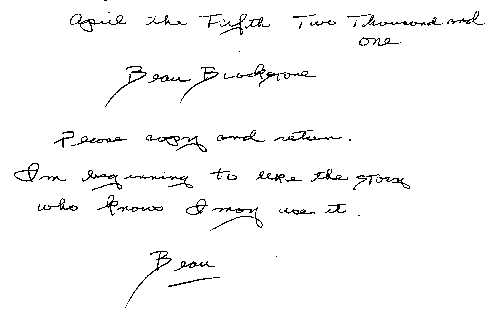 April the Fifth Two Thousand and
one
Beau Brockstone
Please copy and return.
I'm beginning to like the story
who knows I may use it.
Beau